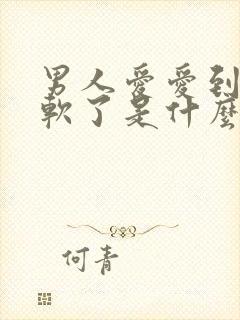 男人愛愛到
軟了是什麼
何青